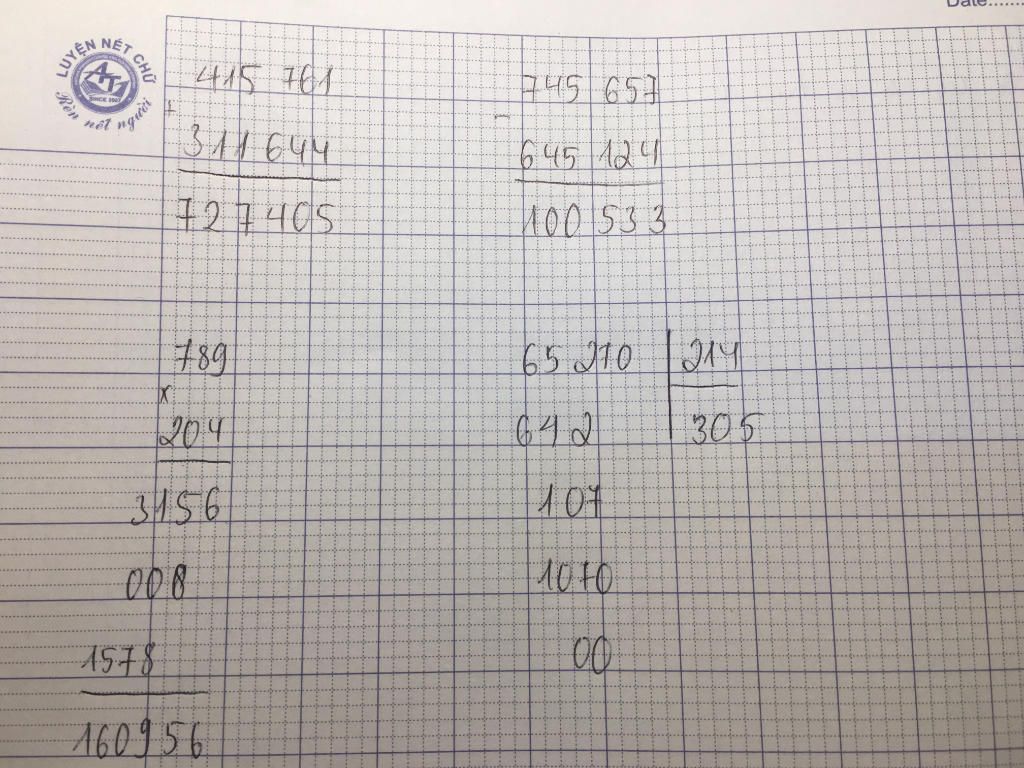 Date:......
LUYỆN NÉT CHỮ
AT
SINCE
Rèn nết người
415 761
+
311 644
727 405
745 657
-
645 124
100 533
789
x
204
3156
000
1578
160956
65 270 214
642 305
107
1070
00